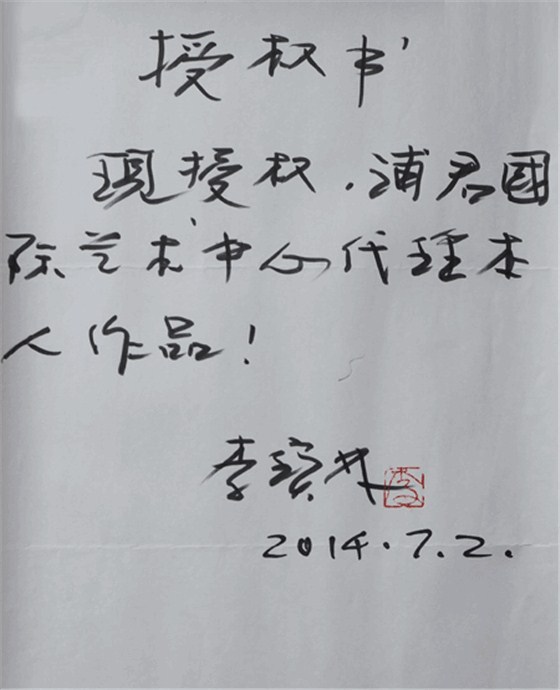 授权书
現授权.浦君國
际艺术中心代理本
人作品!
李寶林
2014.7.2.